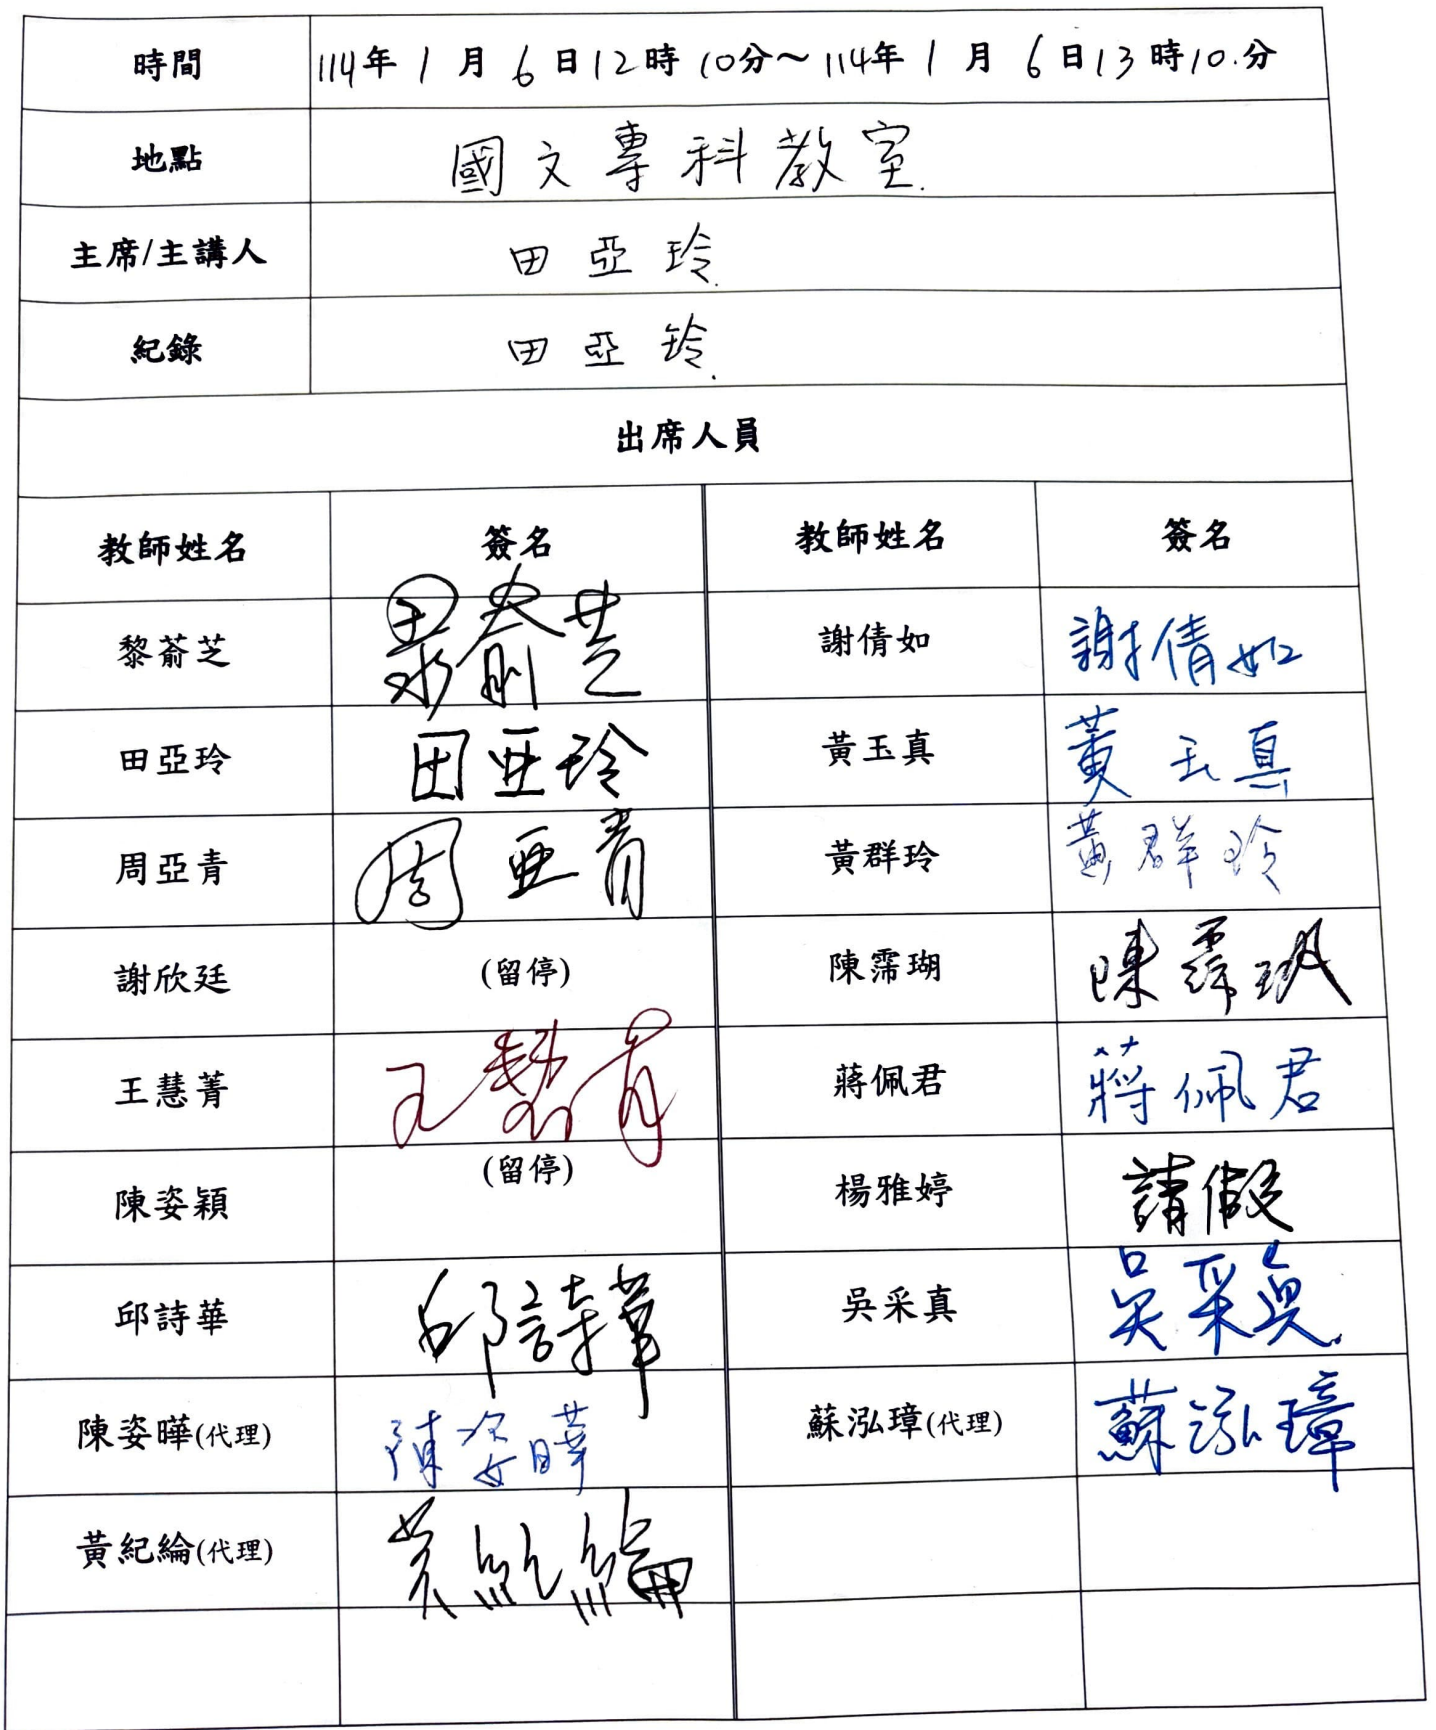 時間 114年1月6日12時10分～114年1月6日13時10.分
地點 國文專科教室.
主席/主講人 田亞玲.
紀錄 田亞玲.
出席人員
教師姓名 簽名 教師姓名 簽名
黎萮芝 黎萮芝 謝倩如 謝倩如
田亞玲 田亞玲 黃玉真 黃玉真
周亞青 周亞青 黃群玲 黃群玲
謝欣廷 (留停) 陳霈瑚 陳霈瑚
王慧菁 王慧菁 蔣佩君 蔣佩君
陳姿穎 (留停) 楊雅婷 請假
邱詩華 邱詩華 吳采真 吳采真.
陳姿曄(代理) 陳姿曄 蘇泓璋(代理) 蘇泓璋
黃紀綸(代理) 黃紀綸